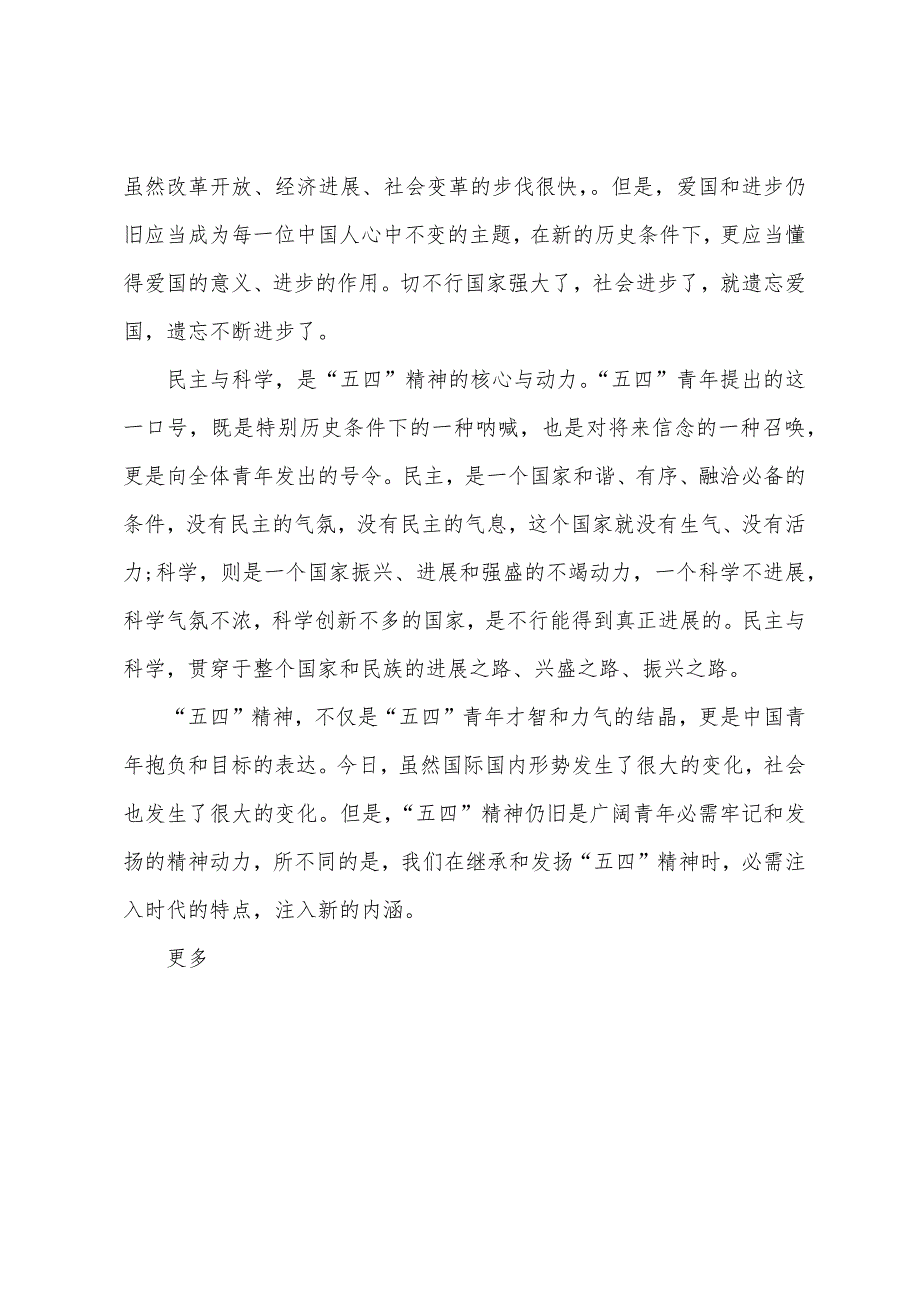 虽然改革开放、经济进展、社会变革的步伐很快，。但是，爱国和进步仍
旧应当成为每一位中国人心中不变的主题，在新的历史条件下，更应当懂
得爱国的意义、进步的作用。切不行国家强大了，社会进步了，就遗忘爱
国，遗忘不断进步了。
民主与科学，是“五四”精神的核心与动力。“五四”青年提出的这
一口号，既是特别历史条件下的一种呐喊，也是对将来信念的一种召唤，
更是向全体青年发出的号令。民主，是一个国家和谐、有序、融洽必备的
条件，没有民主的气氛，没有民主的气息，这个国家就没有生气、没有活
力;科学，则是一个国家振兴、进展和强盛的不竭动力，一个科学不进展，
科学气氛不浓，科学创新不多的国家，是不行能得到真正进展的。民主与
科学，贯穿于整个国家和民族的进展之路、兴盛之路、振兴之路。
“五四”精神，不仅是“五四”青年才智和力气的结晶，更是中国青
年抱负和目标的表达。今日，虽然国际国内形势发生了很大的变化，社会
也发生了很大的变化。但是，“五四”精神仍旧是广阔青年必需牢记和发
扬的精神动力，所不同的是，我们在继承和发扬“五四”精神时，必需注
入时代的特点，注入新的内涵。
更多